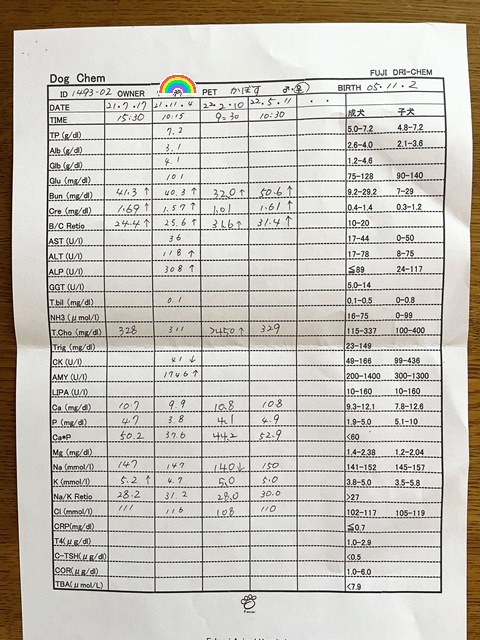 Dog Chem FUJI DRI-CHEM
ID 1493-02 OWNER PET かぼす ♂・♀ BIRTH 05.11.2
DATE 21.7.17 21.11.4 22.2.10 22.5.11 . .
TIME 15:30 10:15 9:30 10:30 成犬 子犬
TP (g/dl) 7.2 5.0-7.2 4.8-7.2
Alb (g/dl) 3.1 2.6-4.0 2.1-3.6
Glb (g/dl) 4.1 1.2-4.6
Glu (mg/dl) 101 75-128 90-140
Bun (mg/dl) 41.3↑ 40.3↑ 32.0↑ 50.6↑ 9.2-29.2 7-29
Cre (mg/dl) 1.69↑ 1.57↑ 1.01 1.61↑ 0.4-1.4 0.3-1.2
B/C Retio 24.4↑ 25.6↑ 31.6↑ 31.4↑ 10-20
AST (U/l) 36 17-44 0-50
ALT (U/l) 118↑ 17-78 8-75
ALP (U/l) 308↑ ≦89 24-117
GGT (U/l) 5.0-14
T.bil (mg/dl) 0.1 0.1-0.5 0-0.8
NH3 (μmol/l) 16-75 0-99
T.Cho (mg/dl) 328 311 >450↑ 329 115-337 100-400
Trig (mg/dl) 23-149
CK (U/l) 41↓ 49-166 99-436
AMY (U/l) 1746↑ 200-1400 300-1300
LIPA (U/l) 10-160 10-160
Ca (mg/dl) 10.7 9.9 10.8 10.8 9.3-12.1 7.8-12.6
P (mg/dl) 4.7 3.8 4.1 4.9 1.9-5.0 5.1-10
Ca*P 50.2 37.6 44.2 52.9 <60
Mg (mg/dl) 1.4-2.38 1.2-2.04
Na (mmol/l) 147 147 140↓ 150 141-152 145-157
K (mmol/l) 5.2↑ 4.7 5.0 5.0 3.8-5.0 3.5-5.8
Na/K Retio 28.2 31.2 28.0 30.0 >27
Cl (mmol/l) 111 116 108 110 102-117 105-119
CRP(mg/dl) ≦0.7
T4(μg/dl) 1.0-2.9
C-TSH(μg/dl) <0.5
COR(μg/dl) 1.0-6.0
TBA(μmol/L) <7.9